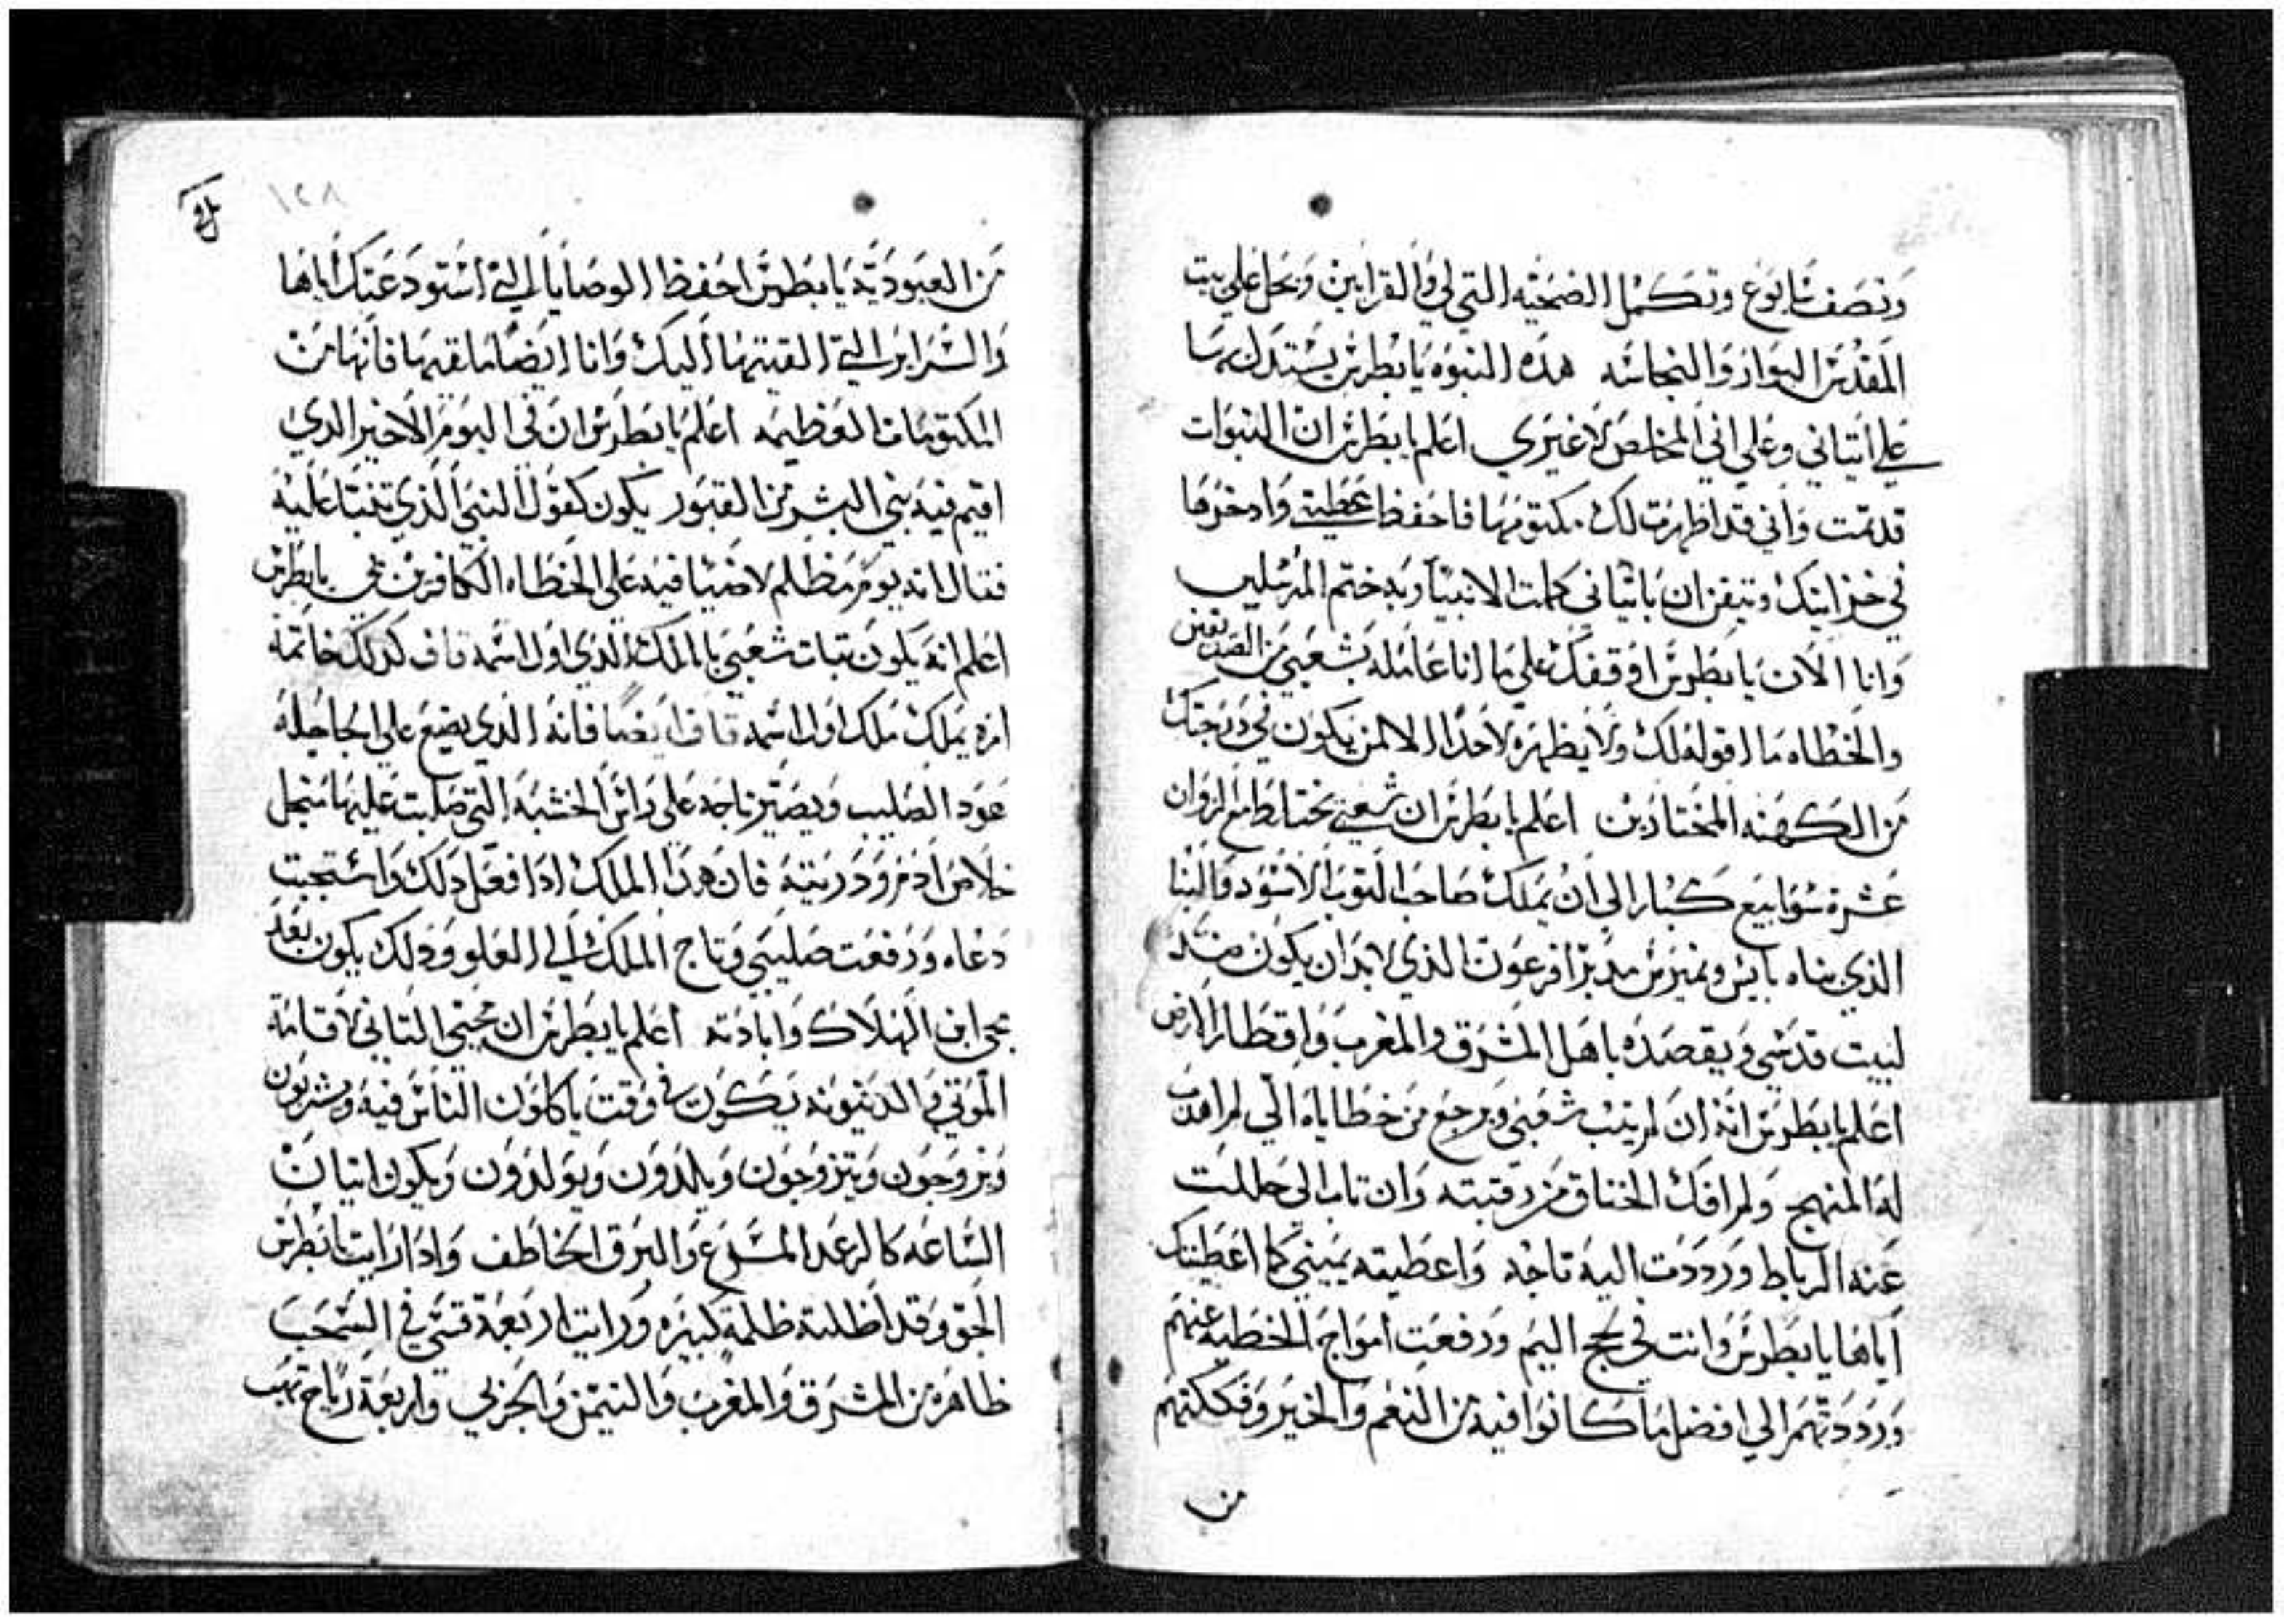 وتصف يابوع وتكمل الضحيه التي لي والقرابين ويحل علي بيت
المقدس البوار والنجاسه هده النبوه يا بطرس يستدل بها
علي اتياني وعلي اني المخلص لا غيري اعلم يا بطرس ان النبوات
قد تمت واني قد اظهرت لك مكتومها فاحفظ عطيتي وادخرها
في خزانتك وتيقن ان باتياني كملت الانبيا وبه ختم المرسلين
وانا الان يا بطرس اوقفك علي ما انا عامله بشعبي من الصديقين
والخطاه ما اقوله لك ولا يظهره لاحدا الا لمن يكون في درجتك
من الكهنه المختارين اعلم يا بطرس ان شعبي يختلط مع الزوان
عشرة سوابيع كبار الي ان يملك صاحب التوب الاسود والبنا
الذي بناه يابيس ونميرس مدبرا فرعون الذي لابد ان يكون ضد
لبيت قدسي ويقصده باهل المشرق والمغرب واقطار الارض
اعلم يا بطرس انه ان لم يتب شعبي ويرجع من خطاياه الي لم اهدب
له المنهج ولم افك الخناق من رقبته وان تاب الي حللت
عنه الرباط ورددت اليه تاجه واعطيته يميني كما اعطيتك
اياها يا بطرس وانت في لجج اليم ورفعت امواج الخطيه عنهم
ورددتهم الي افضل ما كانوا فيه من النعم والخير وفككتهم
من
١٢٨
من العبوديه يا بطرس احفظ الوصايا التي استودعتك اياها
والسراير التي القيتها اليك وانا ايضا ما القيها فانها من
المكتومات العظيمه اعلم يا بطرس ان في اليوم الاخير الدي
اقيم فيه بني البشر من القبور يكون كقول النبي الذي تنبا عليه
فقال انه يوم مظلم لا ضيا فيه علي الخطاه الكافرين بي يا بطرس
اعلم انه يكون تبات شعبي بالملك الذي اول اسمه قاف كدلك خاتمة
امره يملك ملك اول اسمه قاف ايضا فانه الذي يضع علي الجاجله
عود الصليب ويصير تاجه علي راس الخشبه التي صلبت عليها من اجل
خلاص ادم ودريته فان هدا الملك ادا فعل دلك واستجبت
دعاه ورفعت صليبي وتاج الملك الي العلو ودلك يكون بعد
مجي ابن الهلاك وابادته اعلم يا بطرس ان مجيي التاني لاقامة
الموتي والدينونه يكون في وقت ياكلون الناس فيه ويشربون
ويزوجون ويتزوجون ويلدون ويولدون ويكون اتيان
الساعه كالرعد المسرع والبرق الخاطف وادا رايت يا بطرس
الجو وقد اظلته ظلمة كبيره ورايت اربعة قسي في السحب
ظاهره من المشرق والمغرب والتيمن والجربي واربعة رياح تهب